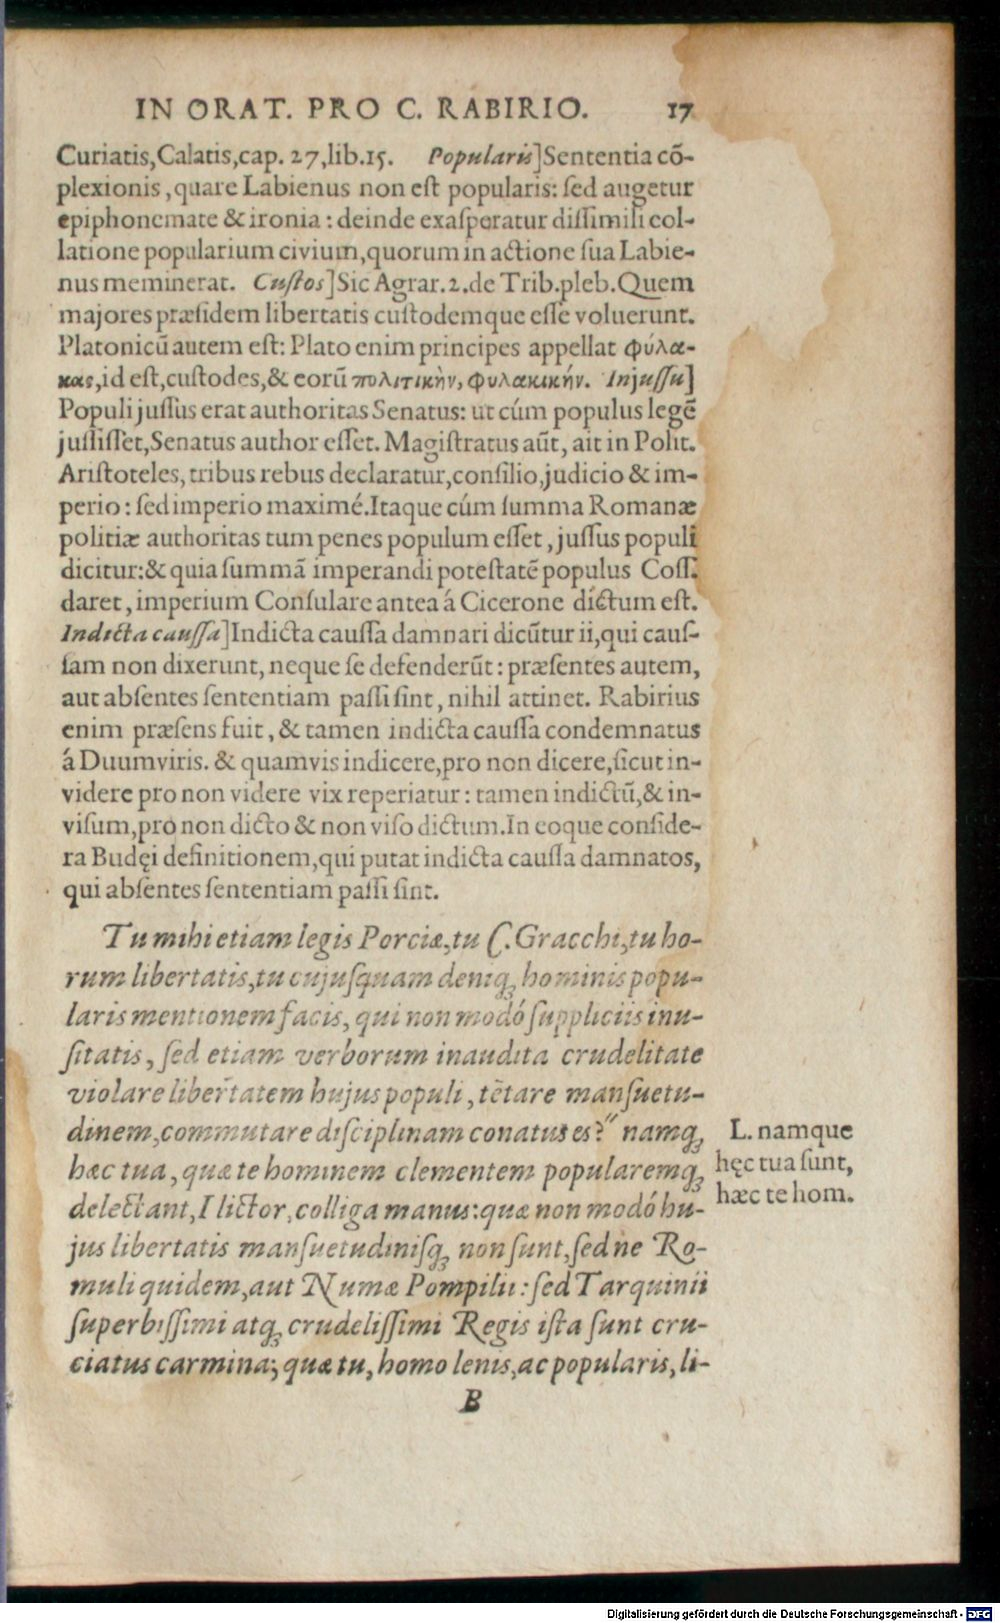 IN ORAT. PRO C. RABIRIO. 17
Curiatis,Calatis,cap. 27,lib.15. Popularis]Sententia cõ-
plexionis, quare Labienus non est popularis: sed augetur
epiphonemate & ironia : deinde exasperatur dissimili col-
latione popularium civium,quorum in actione sua Labie-
nus meminerat. Custos]Sic Agrar.2.de Trib.pleb.Quem
majores præsidem libertatis custodemque esse voluerunt.
Platonicũ autem est: Plato enim principes appellat φύλα-
κας,id est,custodes,& eorũ πολιτικὴν, φυλακικήν. Injussu]
Populi jussus erat authoritas Senatus: ut cúm populus legẽ
jussisset,Senatus author esset. Magistratus aũt, ait in Polit.
Aristoteles, tribus rebus declaratur,consilio,judicio & im-
perio : sed imperio maximé.Itaque cúm summa Romanæ
politiæ authoritas tum penes populum esset, jussus populi
dicitur:& quia summã imperandi potestatẽ populus Coss.
daret, imperium Consulare antea á Cicerone dictum est.
Indicta caussa]Indicta caussa damnari dicũtur ii,qui caus-
sam non dixerunt, neque se defenderũt : præsentes autem,
aut absentes sententiam passi sint, nihil attinet. Rabirius
enim præsens fuit, & tamen indicta caussa condemnatus
á Duumviris. & quamvis indicere,pro non dicere,sicut in-
videre pro non videre vix reperiatur : tamen indictũ,& in-
visum,pro non dicto & non viso dictum.In eoque conside-
ra Budęi definitionem,qui putat indicta caussa damnatos,
qui absentes sententiam passi sint.
Tu mihi etiam legis Porciæ,tu C.Gracchi,tu ho-
rum libertatis,tu cujusquam deniq; hominis popu-
laris mentionem facis, qui non modó suppliciis inu-
sitatis, sed etiam verborum inaudita crudelitate
violare libertatem hujus populi, tẽtare mansuetu-
dinem,commutare disciplinam conatus es?" namq;
hæc tua, quæ te hominem clementem popularemq;
delectant, I lictor, colliga manus: quæ non modó hu-
jus libertatis mansuetudinisq; non sunt, sed ne Ro-
muli quidem,aut Numæ Pompilii : sed Tarquinii
superbissimi atq; crudelissimi Regis ista sunt cru-
ciatus carmina; quæ tu, homo lenis, ac popularis, li-
B
L. namque
hęc tua sunt,
hæc te hom.
Digitalisierung gefördert durch die Deutsche Forschungsgemeinschaft - DFG